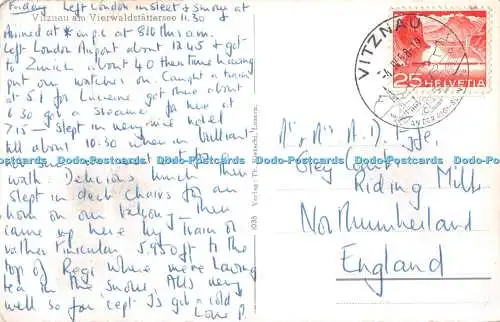 Friday Left London in sleet & snow at
Vitznau am Vierwaldstättersee 11.30
Arrived at * on p.c at 810 this a.m.
left London Airport about 12 45 & got
to Zurich about 4 0 then time having
put our watches on. Caught a train
at 51 for Lucerne got there about
6 30 got a steamer for here at
715 — Slept in very nice hotel
till about 10:30 when in brilliant
walk. Delicious lunch then
slept in deck chairs for an
hour on our balcony — Then
came up here by train or
rather funicular 5.950 ft to the
top of Regi where we're having
tea in the snow. All's very
well so far 'cept J's got a cold
Love P.
1038 Verlag
VITZNAU
25 HELVETIA
Mr & Mrs A.D.
Grey Court
Riding Mill
Northumberland
England
Postcards-Of-The-World